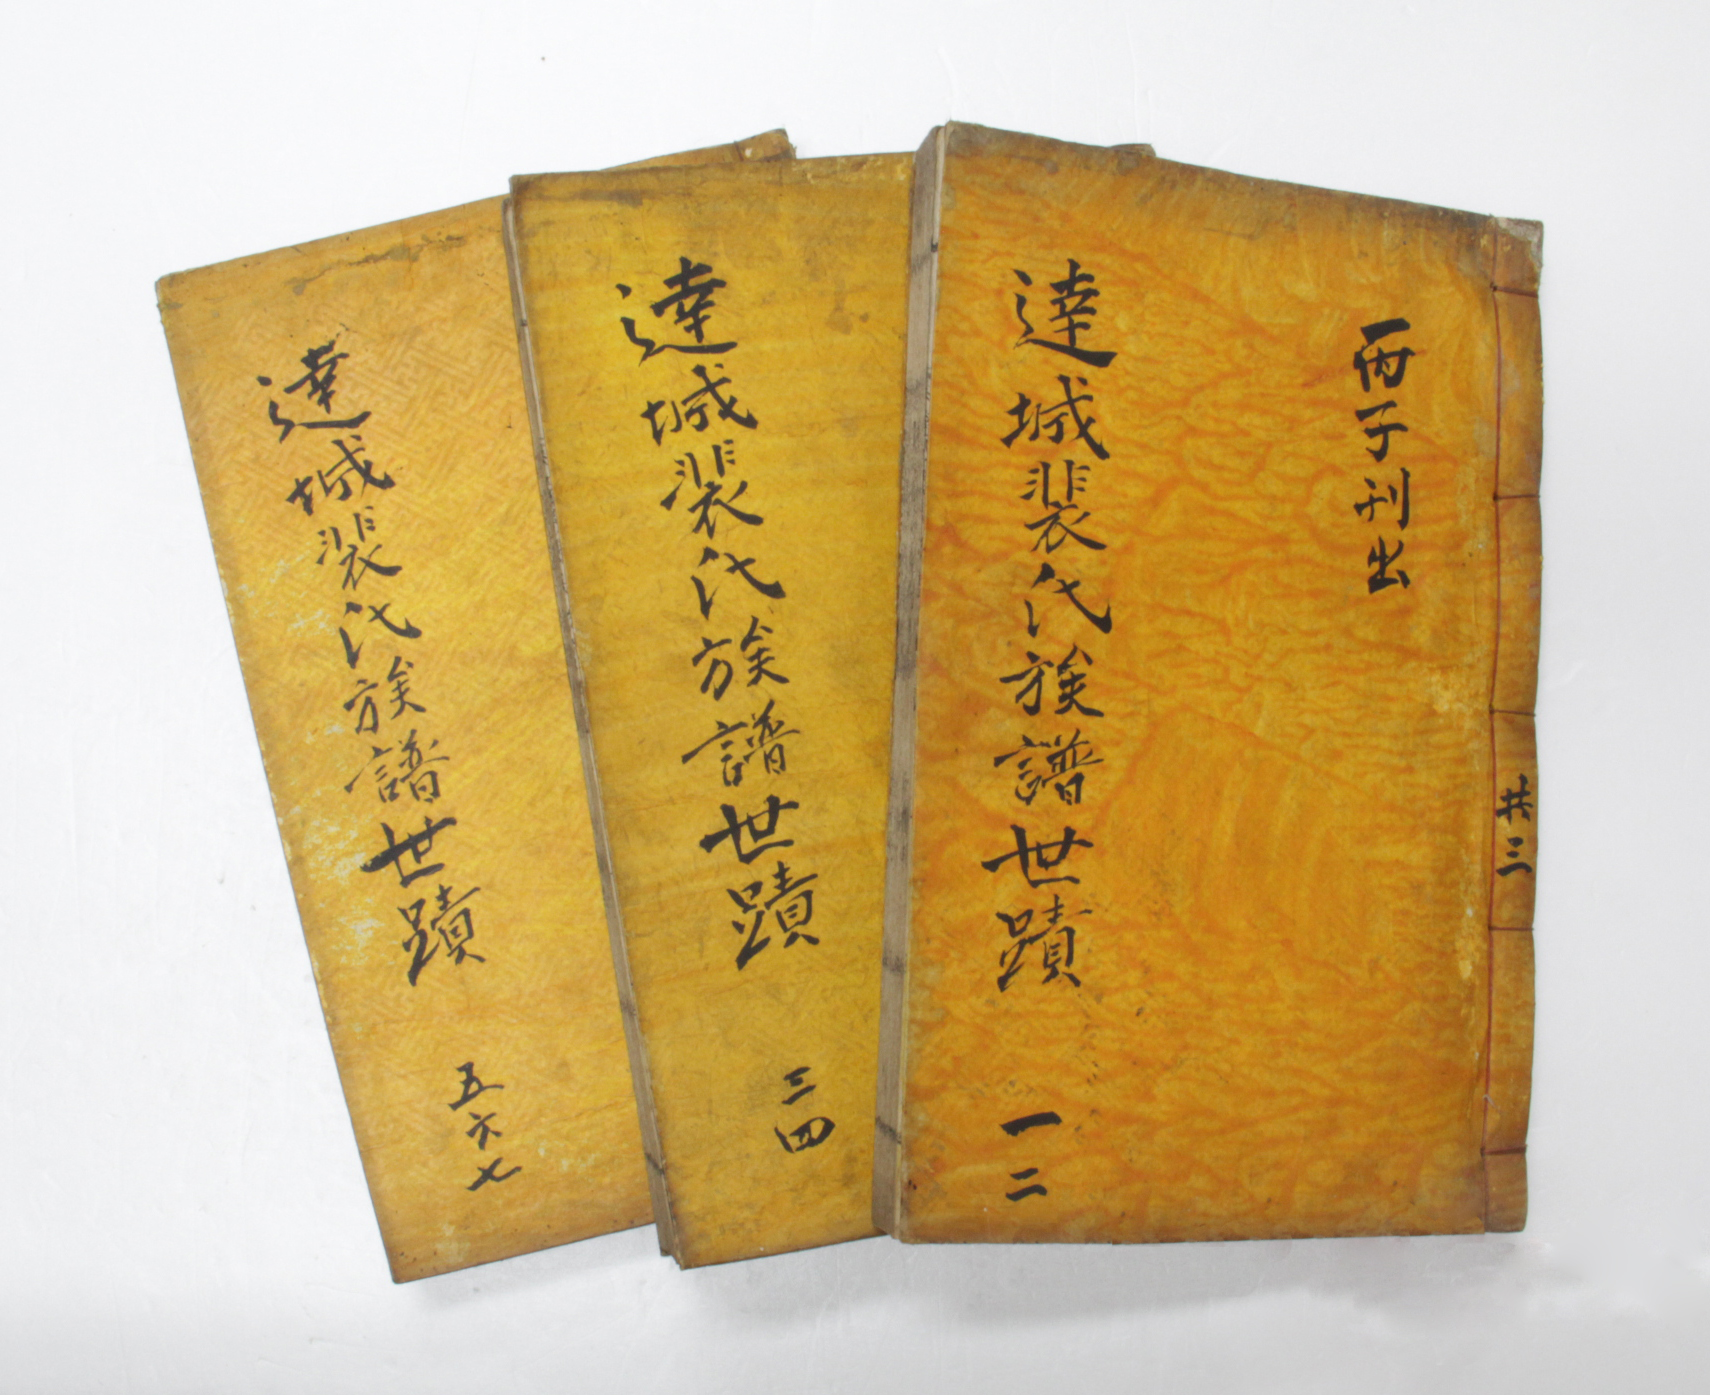 丙子刊出
共三
達城裴氏族譜世蹟 一二
達城裴氏族譜世蹟 三四
達城裴氏族譜世蹟 五六七